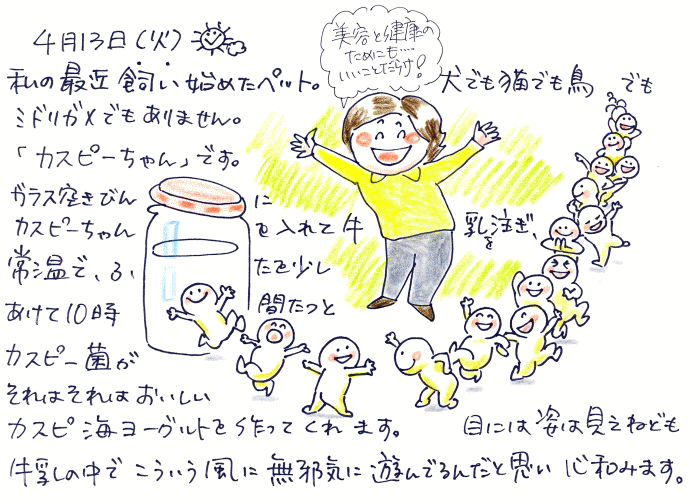 4月13日(火)
美容と健康の
ためにも……
いいことだらけ!
私の最近飼い始めたペット。犬でも猫でも鳥でも
ミドリガメでもありません。
「カスピーちゃん」です。
ガラス空きびんに
カスピーちゃんを入れて牛乳を注ぎ、
常温で、ふたで少し
あけて10時間たつと
カスピー菌が
それはそれはおいしい
カスピ海ヨーグルトを作ってくれます。目には姿は見えねども
牛乳の中でこういう風に無邪気に遊んでるんだと思い心和みます。